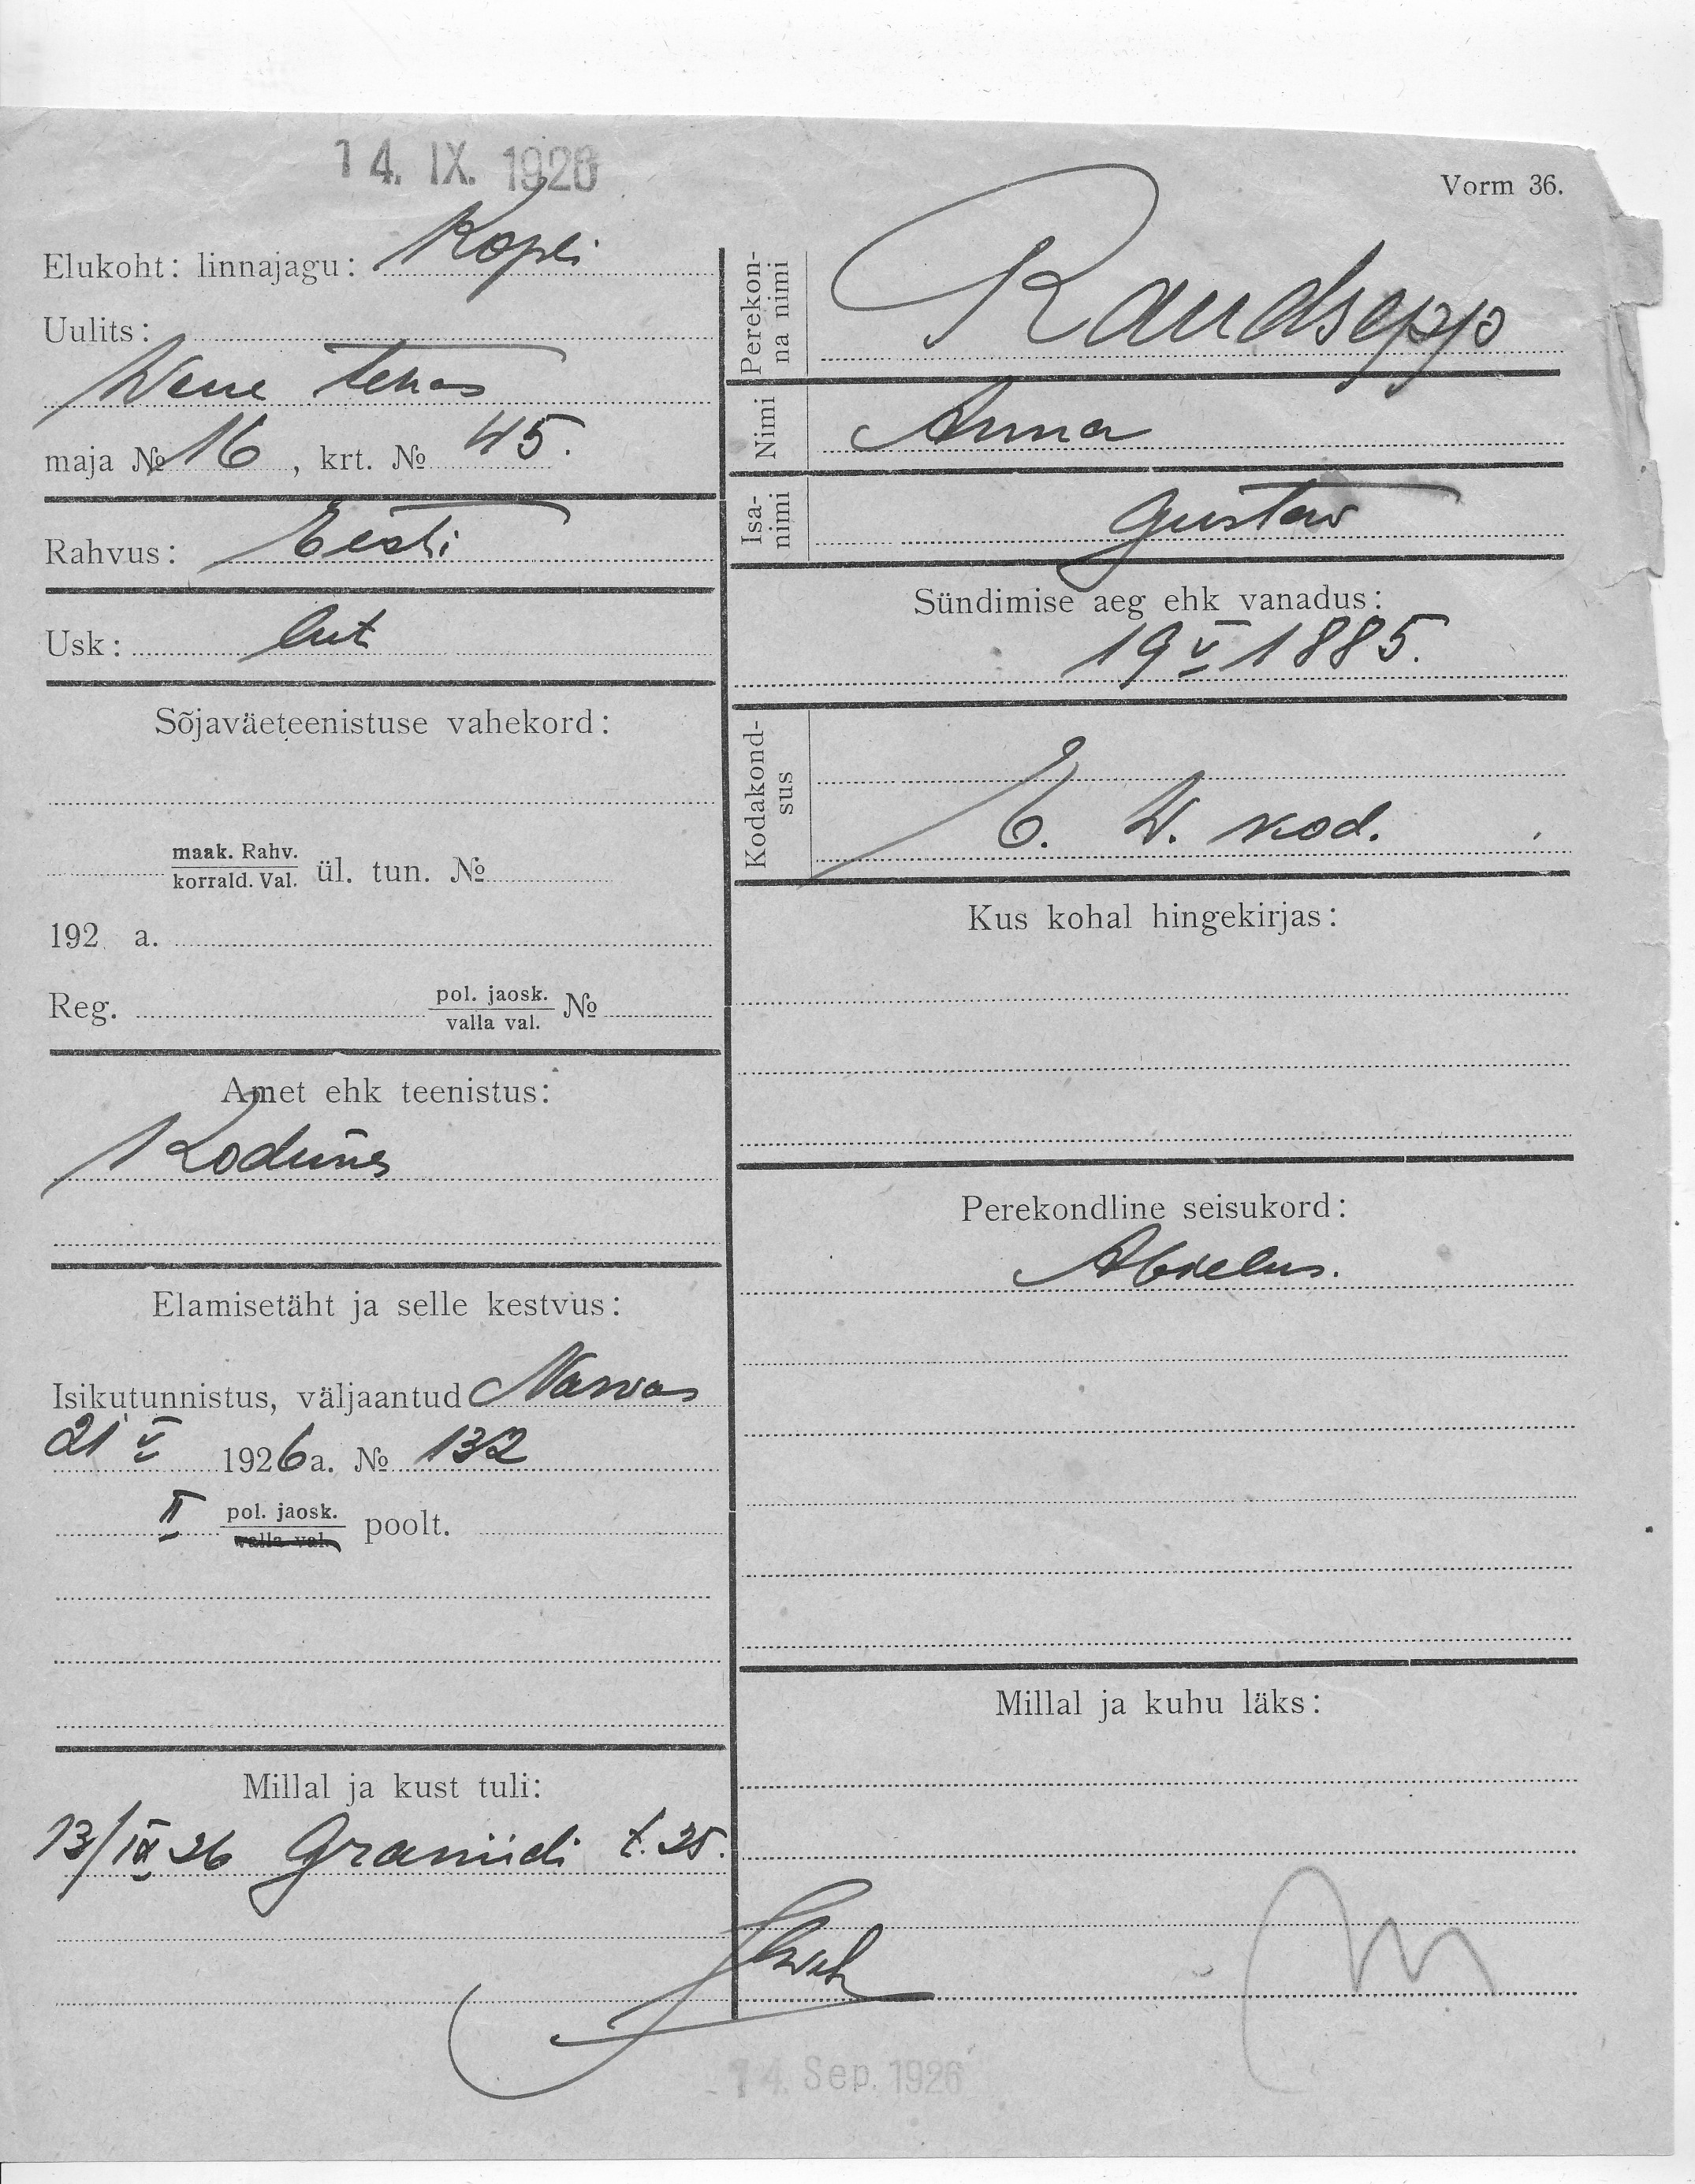 14. IX. 1926
Vorm 36.
Elukoht: linnajagu: Kopli
Uulits:
Wene tehas
maja № 16, krt. № 45.
Rahvus: Eesti
Usk: lut
Sõjaväeteenistuse vahekord:
maak. Rahv.
korrald. Val. ül. tun. №
192 a.
Reg. pol. jaosk.
valla val. №
Amet ehk teenistus:
Kodune
Elamisetäht ja selle kestvus:
Isikutunnistus, väljaantud Narvas
21 V 1926 a. № 132
II pol. jaosk. poolt.
valla val.
Millal ja kust tuli:
13/IX 26 Graniidi t. 25.
Perekonna nimi
Raudsepp
Nimi
Anna
Isanimi
Gustav
Sündimise aeg ehk vanadus:
19 V 1885.
Kodakondsus
E. W. kod.
Kus kohal hingekirjas:
Perekondline seisukord:
Abielus.
Millal ja kuhu läks:
14. Sep. 1926